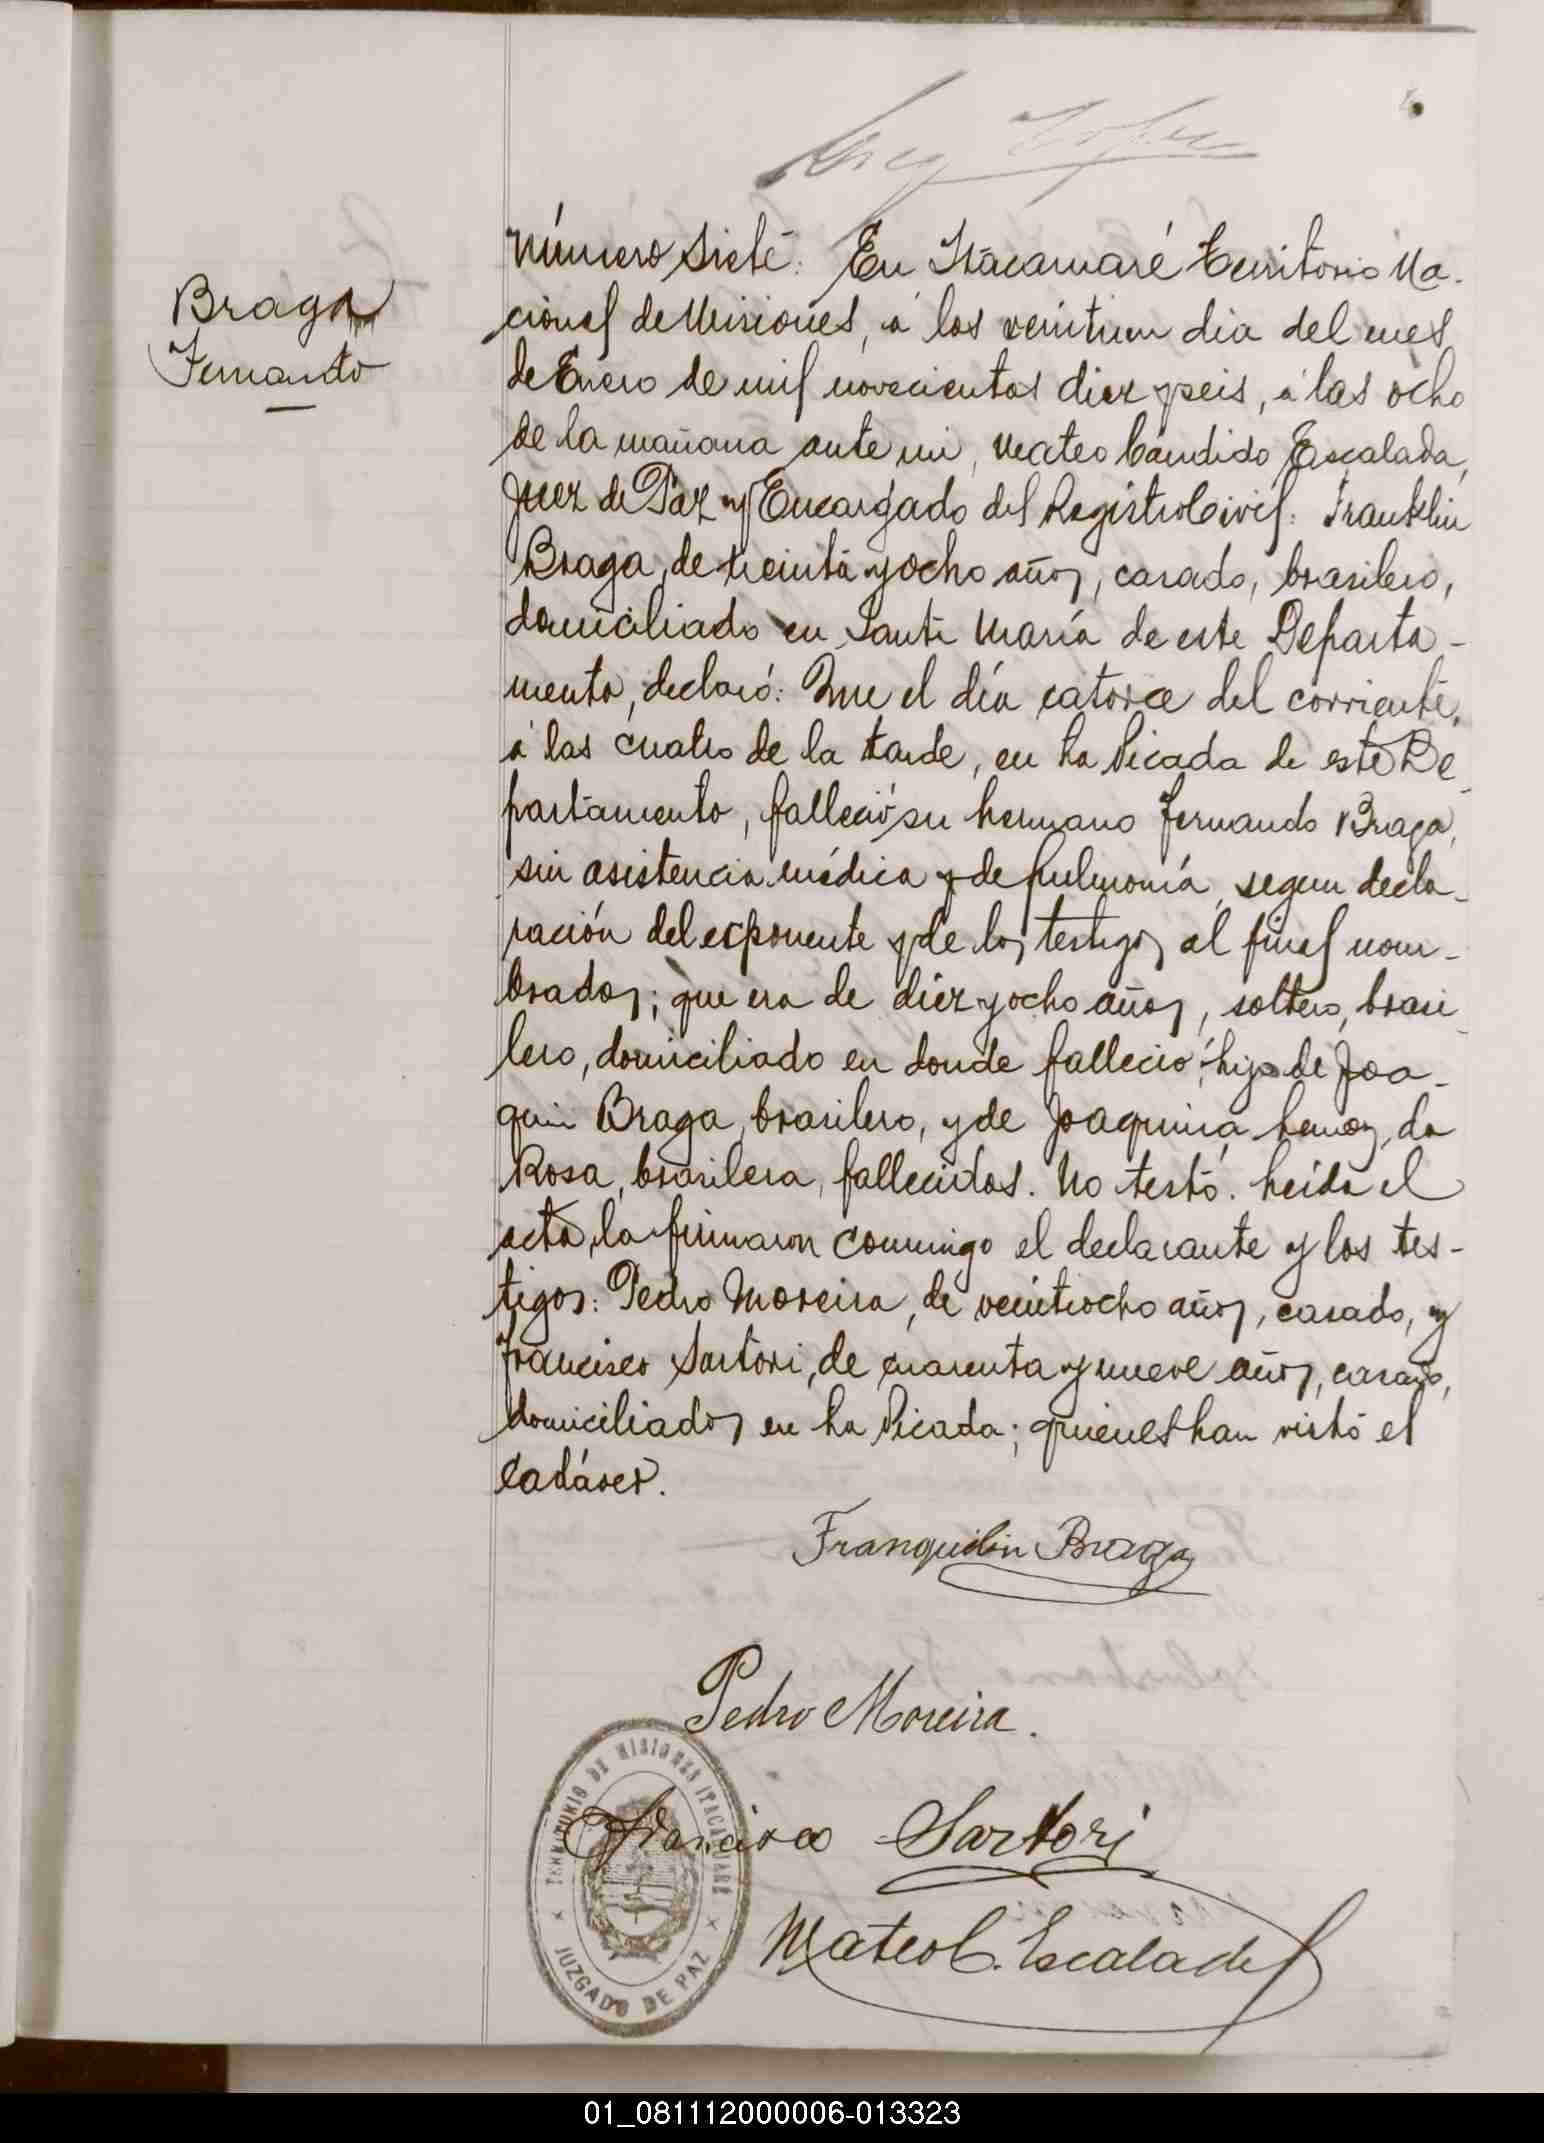 Braga
Fernando
Número Siete: En Itacaruaré Territorio Na-
cional de Misiones, á los veintiun dia del mes
de Enero de mil novecientos diez y seis, á las ocho
de la mañana ante mi, Mateo Cándido Escalada,
Juez de Paz y Encargado del Registro Civil: Franklin
Braga, de treinta y ocho años, casado, brasilero,
domiciliado en Santa María de este Departa-
mento, declaró: Que el día catorce del corriente,
á las cuatro de la tarde, en La Picada de este De-
partamento, falleció su hermano Fernando Braga,
sin asistencia médica y de pulmonía, segun decla-
ración del exponente y de los testigos al final nom-
brados; que era de diez y ocho años, soltero, brasi-
lero, domiciliado en donde falleció; hijo de Joa-
quin Braga, brasilero, y de Joaquina Lemos, da
Rosa, brasilera, fallecidos. No testó. Leída el
acta, la firmaron conmigo el declarante y los tes-
tigos: Pedro Moreira, de veintiocho años, casado, y
Francisco Sartori, de cuarenta y nueve años, casado,
domiciliados en La Picada; quienes han visto el
cadáver.
Franquilin Braga
Pedro Moreira.
Francisco Sartori
Mateo C. Escalada
TERRITORIO DE MISIONES ITACARUARÉ
JUZGADO DE PAZ
01_081112000006-013323